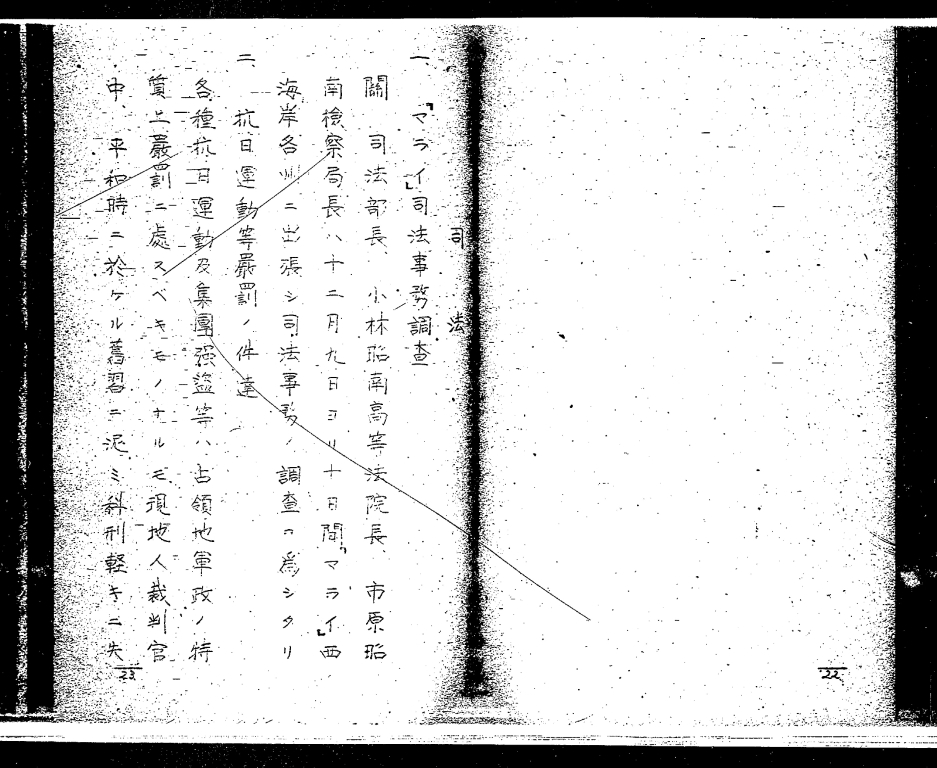 司法
一、「マライ」司法事務調査
關 司法部長、小林昭南高等法院長、市原昭
南檢察局長ハ十二月九日ヨリ十日間「マライ」西
海岸各州ニ出張シ司法事務ノ調査ヲ爲シタリ
二、抗日運動等嚴罰ノ件達
各種抗日運動及集團强盜等ハ占領地軍政ノ特
質上嚴罰ニ處スベキモノナルモ現地人裁判官
中、平和時ニ於ケル舊習ニ泥ミ科刑輕キニ失
23
22